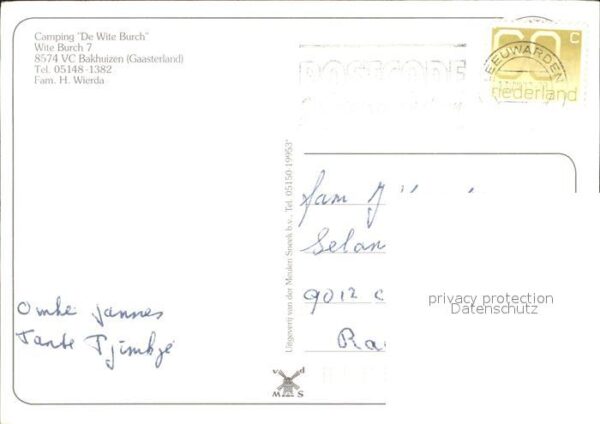 Camping "De Wite Burch"
Wite Burch 7
8574 VC Bakhuizen (Gaasterland)
Tel. 05148-1382
Fam. H. Wierda
POSTCODE
LEEUWARDEN
60 c
nederland
Uitgeverij van der Meulen Sneek b.v., Tel. 05150-19953*
fam
Selan
9012 C
Ra
Omke Jannes
Tante Tjimkje
v d
W M S
privacy protection
Datenschutz